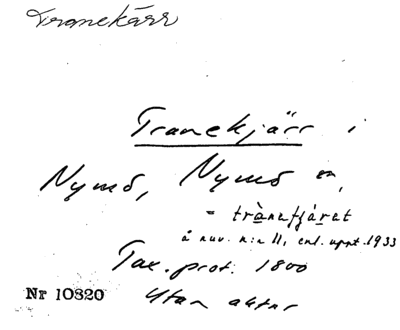 Tranekärr
Tranekjärr i
Nymö, Nymö sn,
= trànafjáret
å nuv. n:r 11, enl. uppt. 1933
Tax. prot. 1800
Utan aktnr
Nr 10820